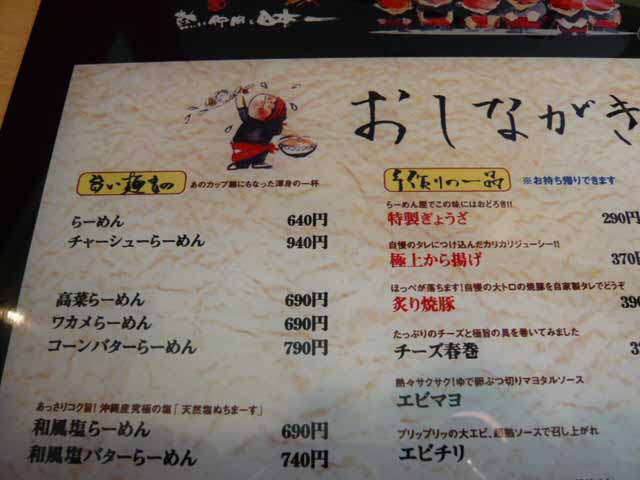 熱い御用と日本一
おしながき
旨い麺もの
あのカップ麺にもなった渾身の一杯
らーめん 640円
チャーシューらーめん 940円
高菜らーめん 690円
ワカメらーめん 690円
コーンバターらーめん 790円
あっさりコク旨!沖縄産究極の塩「天然塩ぬちまーす」
和風塩らーめん 690円
和風塩バターらーめん 740円
手作りの一品
※お持ち帰りできます
らーめん屋でこの味にはおどろき!!
特製ぎょうざ 290円
自慢のタレにつけ込んだカリカリジューシー!!
極上から揚げ 370円
ほっぺが落ちます!自慢の大トロの焼豚を自家製タレでどうぞ
炙り焼豚
たっぷりのチーズと極旨の具を巻いてみました
チーズ春巻
熱々サクサク!ゆで卵ぶつ切りマヨタルソース
エビマヨ
プリップリッの大エビ、超熟ソースで召し上がれ
エビチリ